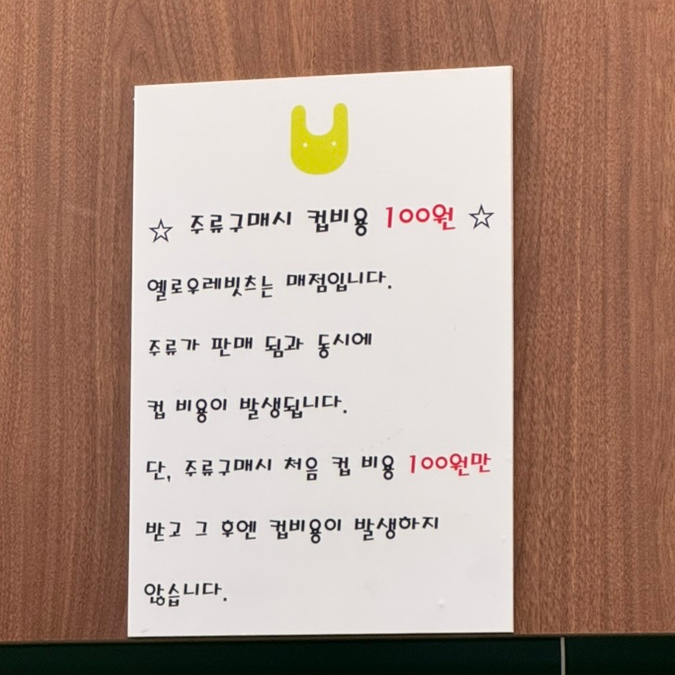 ☆ 주류구매시 컵비용 100원 ☆
옐로우레빗츠는 매점입니다.
주류가 판매 됨과 동시에
컵 비용이 발생됩니다.
단, 주류구매시 처음 컵 비용 100원만
받고 그 후엔 컵비용이 발생하지
않습니다.